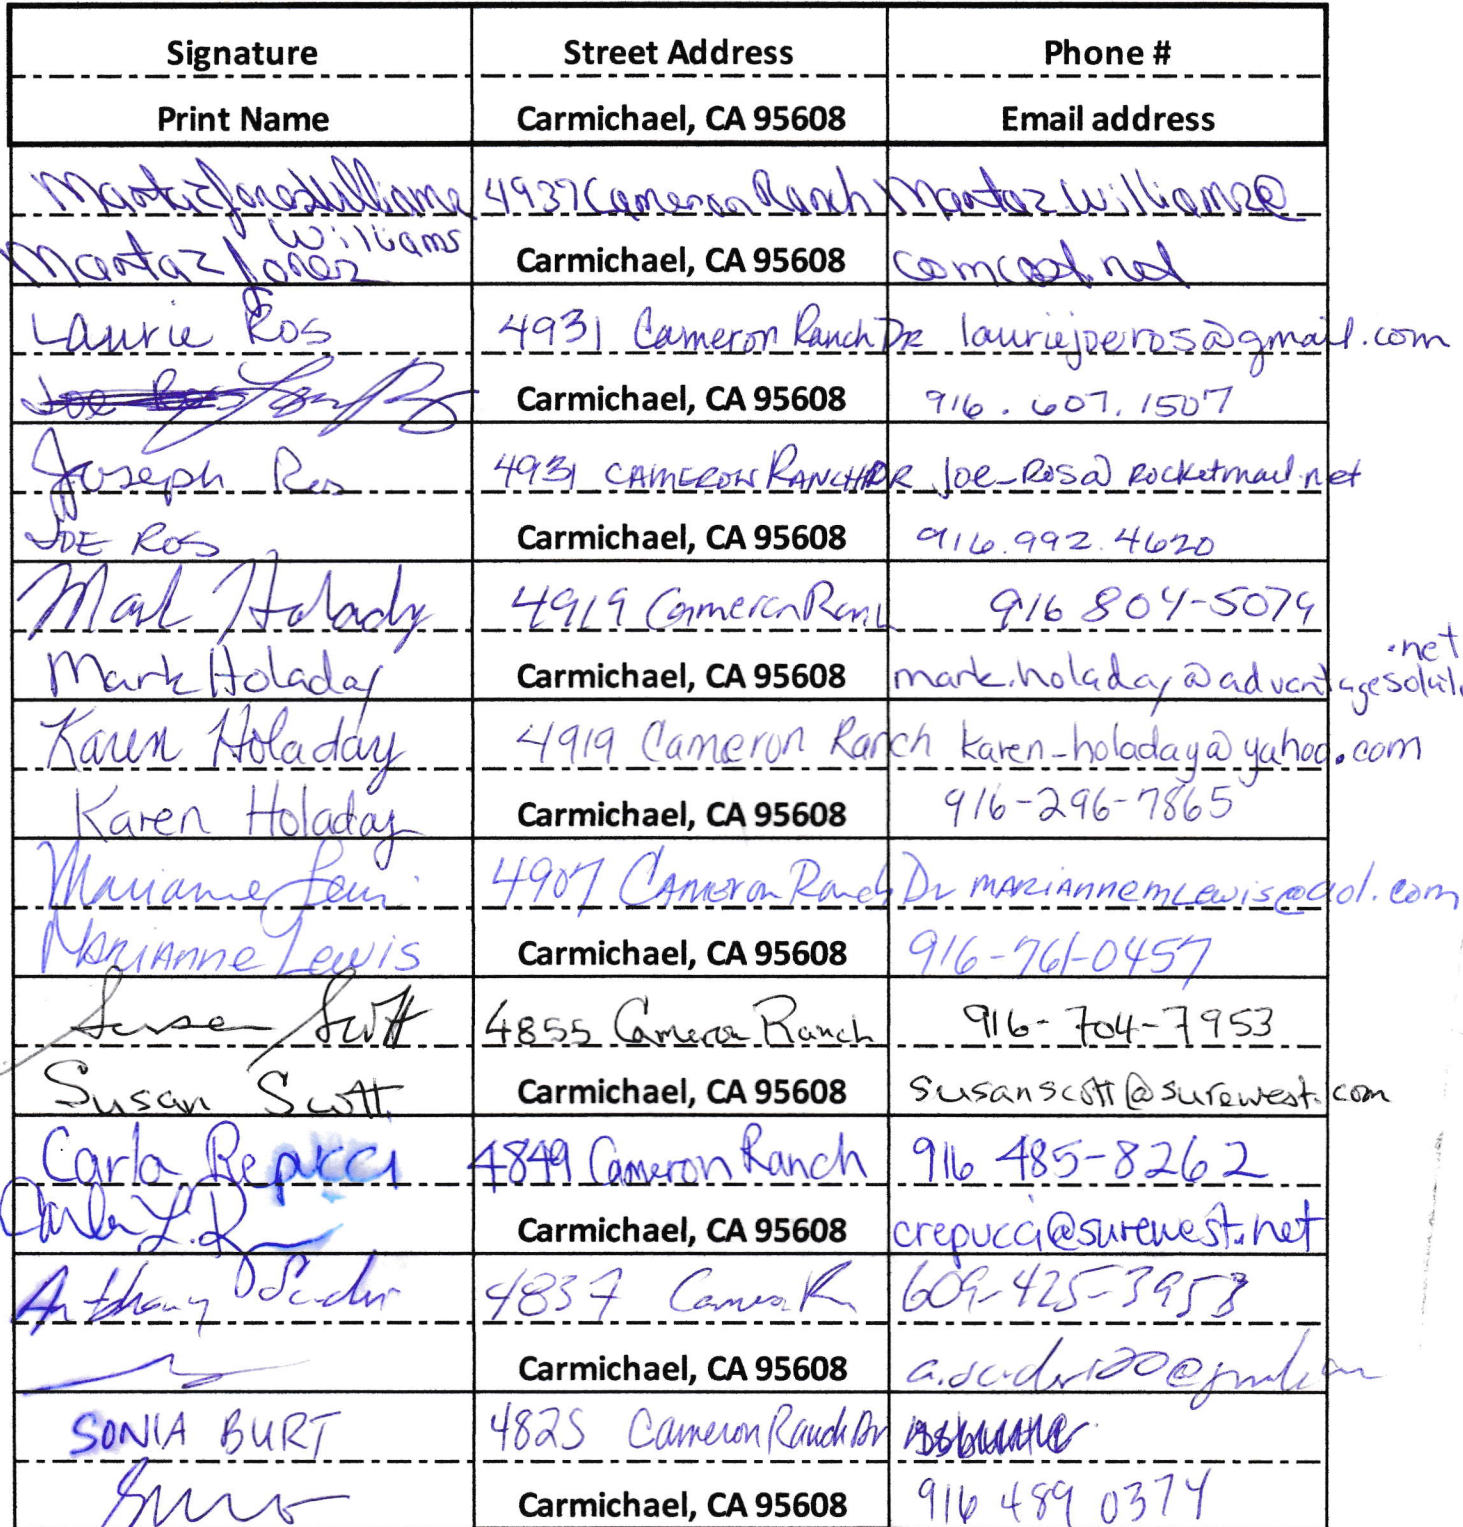 Signature Street Address Phone #
Print Name Carmichael, CA 95608 Email address
4937 Cameron Ranch MartazWilliams2@
Williams
Martaz Jones Carmichael, CA 95608 comcast.net
Laurie Ros 4931 Cameron Ranch DR lauriejoeros@gmail.com
Carmichael, CA 95608 916.607.1507
Joseph Ros 4931 CAMERON RANCH DR Joe_Ros@rocketmail.net
JOE ROS Carmichael, CA 95608 916.992.4620
Mark Holaday 4919 Cameron Ranch 916 804-5074
.net
Mark Holaday Carmichael, CA 95608 mark.holaday@advantagesolut.
Karen Holaday 4919 Cameron Ranch karen_holaday@yahoo.com
Karen Holaday Carmichael, CA 95608 916-296-7865
Marianne Lewis 4907 Cameron Ranch Dr MARIANNEMLewis@aol.com
MARIANNE Lewis Carmichael, CA 95608 916-761-0457
Susan Scott 4855 Cameron Ranch 916-704-7953
Susan Scott Carmichael, CA 95608 susanscott@surewest.com
Carla Repucci 4849 Cameron Ranch 916 485-8262
Carla L. R Carmichael, CA 95608 crepucci@surewest.net
Anthony 4837 609-425-3953
Carmichael, CA 95608
SONIA BURT 4825 Cameron Ranch Dr
Carmichael, CA 95608 916 489 0374